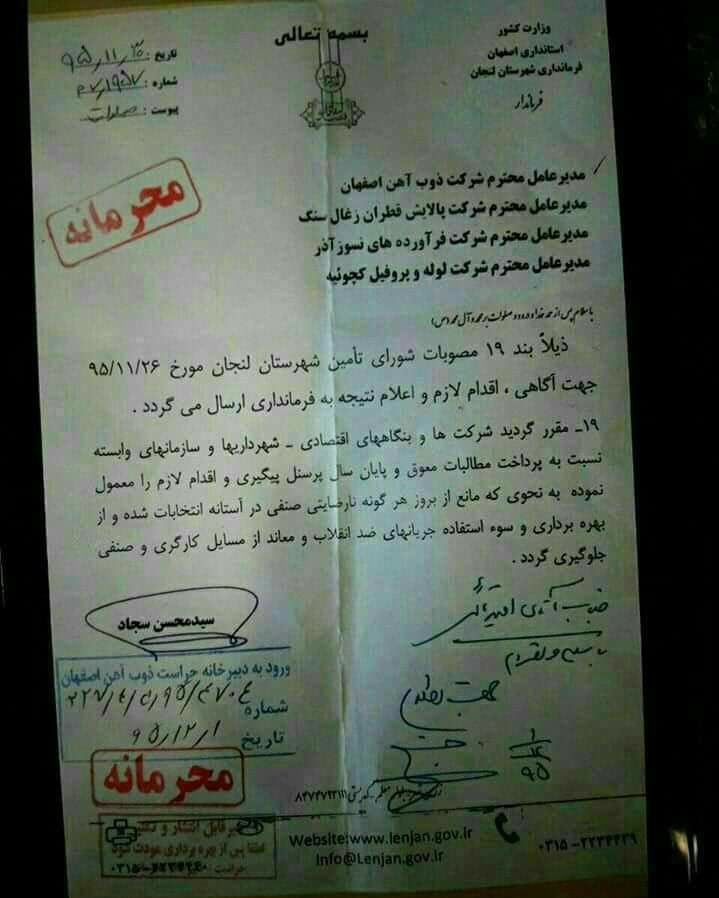 بسمه تعالی
وزارت کشور
استانداری اصفهان
فرمانداری شهرستان لنجان
فرماندار
تاریخ : ۹۵/۱۱/۳۰
شماره :
پیوست :
محرمانه
مدیرعامل محترم شرکت ذوب آهن اصفهان
مدیرعامل محترم شرکت پالایش قطران زغال سنگ
مدیرعامل محترم شرکت فرآورده های نسوزآذر
مدیرعامل محترم شرکت لوله و پروفیل کچوئیه
باسلام پس از حمد خدا و درود و صلوات بر محمد و آل محمد (ص)
ذیلاً بند ۱۹ مصوبات شورای تأمین شهرستان لنجان مورخ ۹۵/۱۱/۲۶
جهت آگاهی ، اقدام لازم و اعلام نتیجه به فرمانداری ارسال می گردد .
۱۹- مقرر گردید شرکت ها و بنگاههای اقتصادی – شهرداریها و سازمانهای وابسته
نسبت به پرداخت مطالبات معوق و پایان سال پرسنل پیگیری و اقدام لازم را معمول
نموده به نحوی که مانع از بروز هر گونه نارضایتی صنفی در آستانه انتخابات شده و از
بهره برداری و سوء استفاده جریانهای ضد انقلاب و معاند از مسایل کارگری و صنفی
جلوگیری گردد .
سیدمحسن سجاد
ورود به دبیرخانه حراست ذوب آهن اصفهان
شماره
تاریخ ۹۵/۱۲/۱
محرمانه
غیرقابل انتشار و
لطفا پس از بهره برداری عودت شود
۰۳۱۵-
Website:www.lenjan.gov.ir
Info@Lenjan.gov.ir
۰۳۱۵-۲۲۳۴۴۳۹